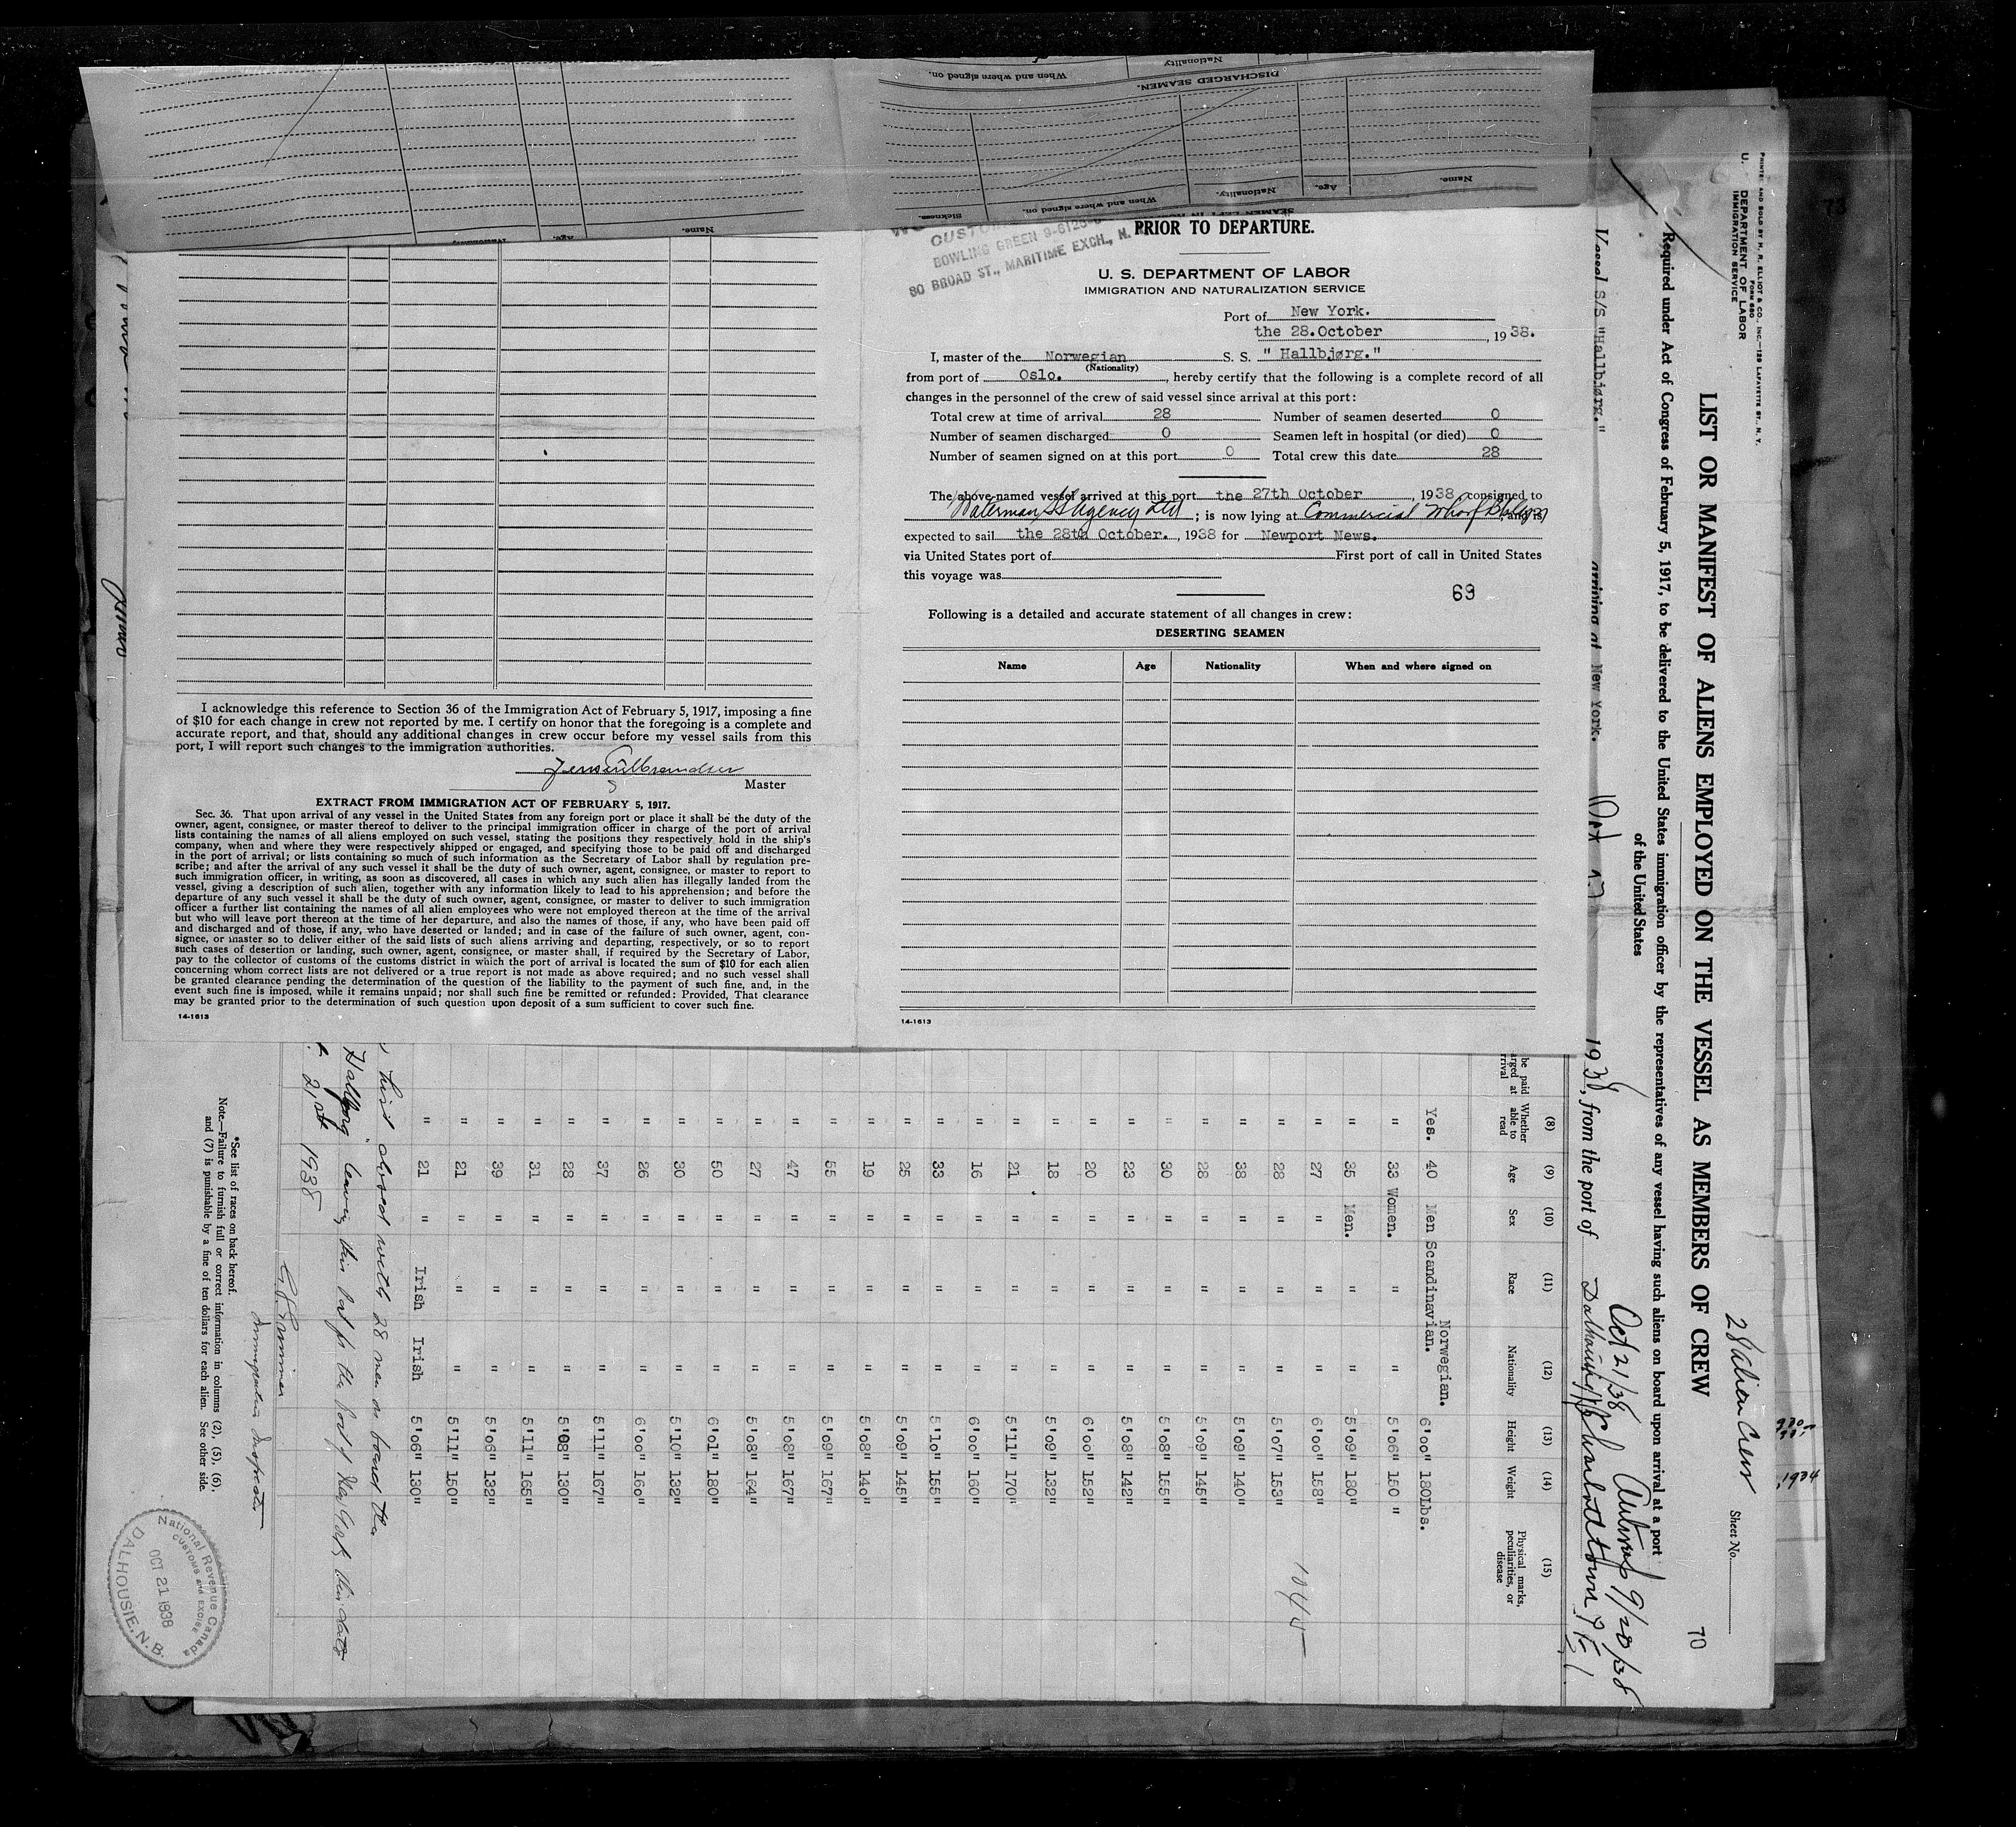 DISCHARGED SEAMEN.
Nationality
When and where signed on.
Name.
Age.
Nationality.
When and where signed on.
Sickness.
Name.
Age.
CUSTOM
BOWLING GREEN 9-6125
80 BROAD ST., MARITIME EXCH., N.
PRIOR TO DEPARTURE.
U. S. DEPARTMENT OF LABOR
IMMIGRATION AND NATURALIZATION SERVICE
Port of New York.
the 28.October, 1938.
I, master of the Norwegian S. S. " Hallbjørg."
(Nationality)
from port of Oslo., hereby certify that the following is a complete record of all
changes in the personnel of the crew of said vessel since arrival at this port:
Total crew at time of arrival 28 Number of seamen deserted 0
Number of seamen discharged 0 Seamen left in hospital (or died) 0
Number of seamen signed on at this port 0 Total crew this date 28
The above-named vessel arrived at this port the 27th October, 1938, consigned to
Waterman SS Agency Ltd; is now lying at Commercial Wharf Bklyn and is
expected to sail the 28th October., 1938 for Newport News.
via United States port of First port of call in United States
this voyage was
69
Following is a detailed and accurate statement of all changes in crew:
DESERTING SEAMEN
Name Age Nationality When and where signed on
14-1613
I acknowledge this reference to Section 36 of the Immigration Act of February 5, 1917, imposing a fine
of $10 for each change in crew not reported by me. I certify on honor that the foregoing is a complete and
accurate report, and that, should any additional changes in crew occur before my vessel sails from this
port, I will report such changes to the immigration authorities.
Master
EXTRACT FROM IMMIGRATION ACT OF FEBRUARY 5, 1917.
Sec. 36. That upon arrival of any vessel in the United States from any foreign port or place it shall be the duty of the
owner, agent, consignee, or master thereof to deliver to the principal immigration officer in charge of the port of arrival
lists containing the names of all aliens employed on such vessel, stating the positions they respectively hold in the ship's
company, when and where they were respectively shipped or engaged, and specifying those to be paid off and discharged
in the port of arrival; or lists containing so much of such information as the Secretary of Labor shall by regulation pre-
scribe; and after the arrival of any such vessel it shall be the duty of such owner, agent, consignee, or master to report to
such immigration officer, in writing, as soon as discovered, all cases in which any such alien has illegally landed from the
vessel, giving a description of such alien, together with any information likely to lead to his apprehension; and before the
departure of any such vessel it shall be the duty of such owner, agent, consignee, or master to deliver to such immigration
officer a further list containing the names of all alien employees who were not employed thereon at the time of the arrival
but who will leave port thereon at the time of her departure, and also the names of those, if any, who have been paid off
and discharged and of those, if any, who have deserted or landed; and in case of the failure of such owner, agent, con-
signee, or master so to deliver either of the said lists of such aliens arriving and departing, respectively, or so to report
such cases of desertion or landing, such owner, agent, consignee, or master shall, if required by the Secretary of Labor,
pay to the collector of customs of the customs district in which the port of arrival is located the sum of $10 for each alien
concerning whom correct lists are not delivered or a true report is not made as above required; and no such vessel shall
be granted clearance pending the determination of the question of the liability to the payment of such fine, and, in the
event such fine is imposed, while it remains unpaid; nor shall such fine be remitted or refunded: Provided, That clearance
may be granted prior to the determination of such question upon deposit of a sum sufficient to cover such fine.
14-1613
PRINTED AND SOLD BY H. R. ELLIOT & CO., INC.—129 LAFAYETTE ST., N. Y.
FORM 680
U. DEPARTMENT OF LABOR
IMMIGRATION SERVICE
28 alien Crew
Sheet No.
70
LIST OR MANIFEST OF ALIENS EMPLOYED ON THE VESSEL AS MEMBERS OF CREW
Required under Act of Congress of February 5, 1917, to be delivered to the United States immigration officer by the representatives of any vessel having such aliens on board upon arrival at a port
of the United States
Oct 21/38 Antwerp 9/20/38
Vessel S/S "Hallbjørg." arriving at New York. Oct 27 1938, from the port of Dalhousie Charlottetown P E I
be paid
arged at
rrival
(8) Whether able to read
(9) Age
(10) Sex
(11) Race
(12) Nationality
(13) Height
(14) Weight
(15) Physical marks, peculiarities, or disease
Norwegian.
Yes. 40 Men Scandinavian. 6'00" 180Lbs.
" 33 Women. " " 5'06" 150 "
" 35 Men. " " 5'09" 180"
" 27 " " " 6'00" 158"
" 28 " " " 5'07" 153"
" 38 " " " 5'09" 140"
" 28 " " " 5'09" 145"
" 30 " " " 5'08" 155"
" 23 " " " 5'08" 142"
" 20 " " " 6'00" 152"
" 18 " " " 5'09" 132"
" 21 " " " 5'11" 170"
" 16 " " " 6'00" 160"
" 33 " " " 5'10" 155"
" 25 " " " 5'09" 145"
" 19 " " " 5'08" 140"
" 55 " " " 5'09" 167"
" 47 " " " 5'08" 167"
" 27 " " " 5'08" 164"
" 50 " " " 6'01" 180"
" 30 " " " 5'10" 132"
" 26 " " " 6'00" 160"
" 37 " " " 5'11" 167"
" 28 " " " 5'08" 130"
" 31 " " " 5'11" 165"
" 39 " " " 5'06" 132"
" 21 " " " 5'11" 150"
" 21 " Irish Irish 5'06" 130"
List closed with 28 men on board the
Hallbjorg leaving this Port for the Port of New York this date
21st 1938
Immigration Inspector
*See list of races on back hereof.
Note.—Failure to furnish full or correct information in columns (2), (5), (6),
and (7) is punishable by a fine of ten dollars for each alien. See other side.
National Revenue Canada
CUSTOMS and EXCISE
OCT 21 1938
DALHOUSIE, N.B.
73
, 1934